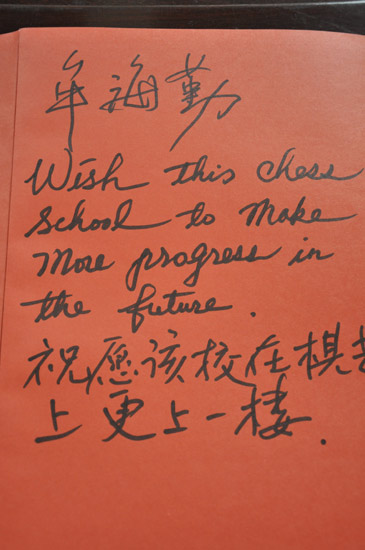 牟海勤
Wish this chess
School to Make
More progress in
the future.
祝愿该校在棋
上更上一楼.